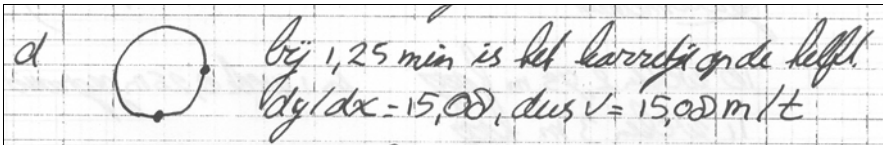 d bij 1,25 min is het karretje op de helft.
dy/dx = 15,08, dus v = 15,08 m/t